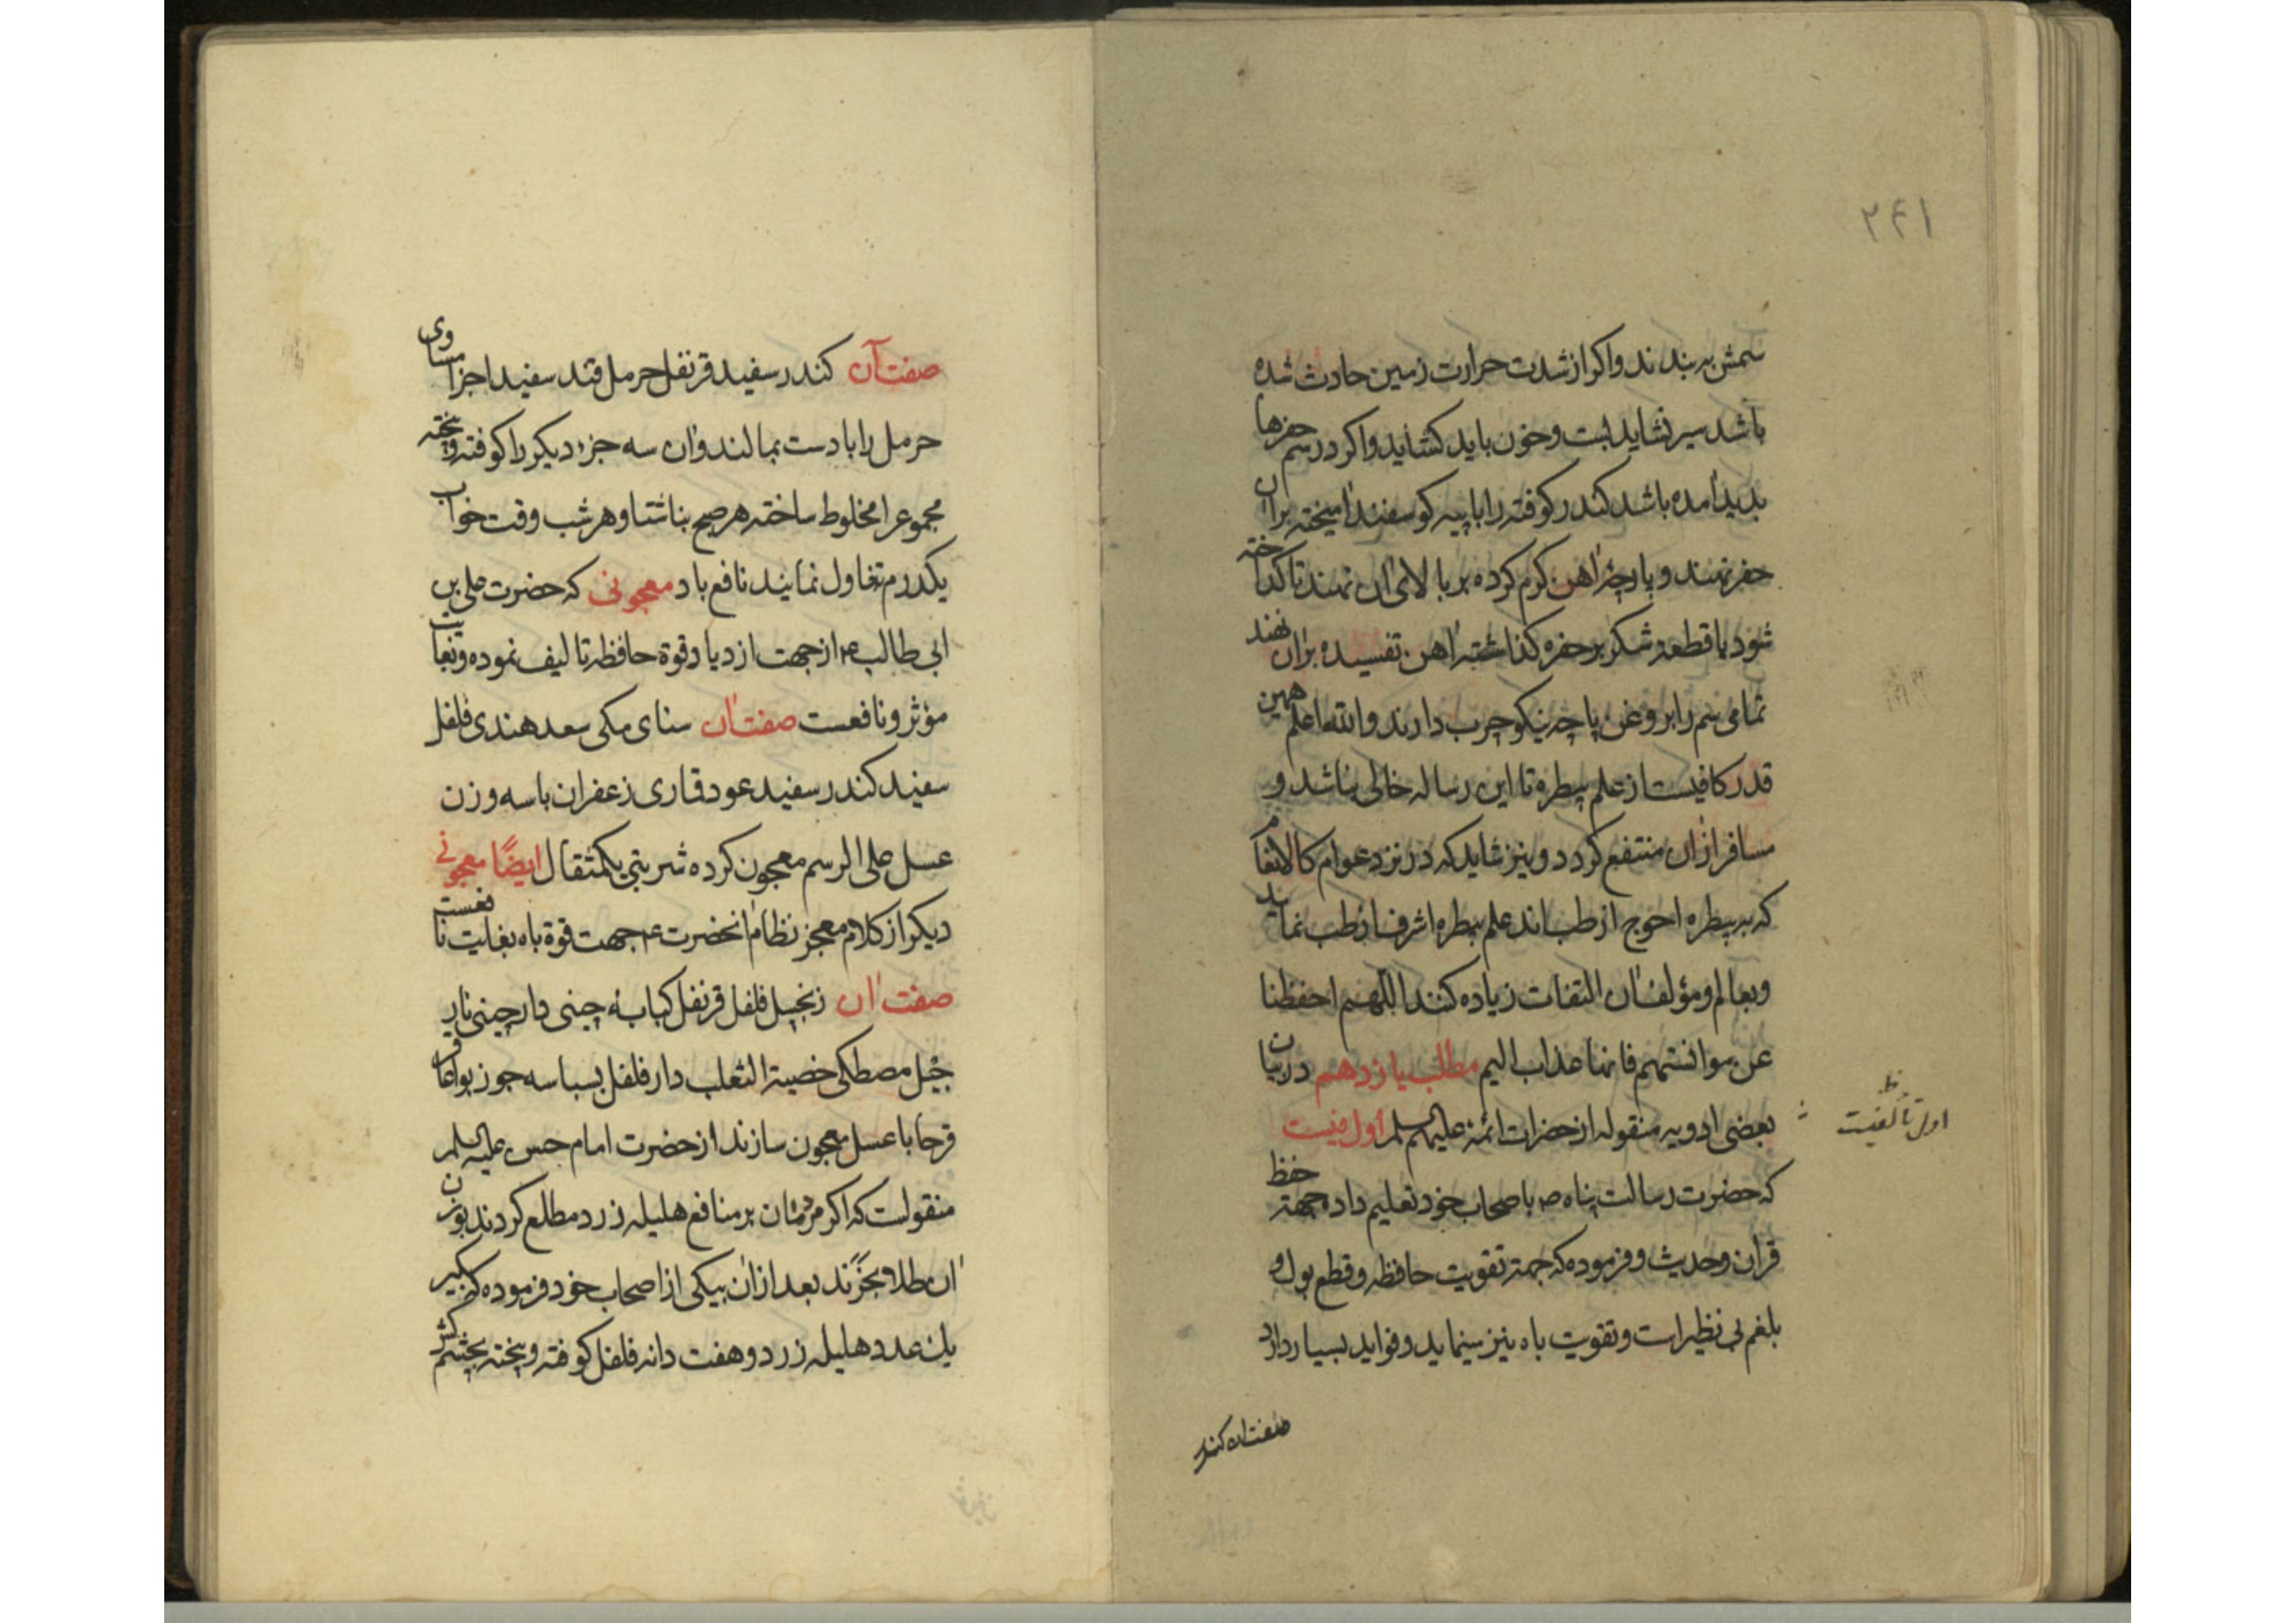 ۲۴۱
سمش بربندند واکر از شدت حرارت زمین حادث شده
باشد سیر نشاید بست وخون باید کشاید واکر در سم حفرها
بدید آمده باشد کندر کوفته را با پیه کوسفند آمیخته بر آن
حفر نهند و پارچهٔ آهن کرم کرده بر بالای آن نهند تا کداخته
شود یا قطعهٔ شکر بر حفره کذاشته آهن تفسیده بر آن نهند
تمامی سم را بروغن پاچه نیکو چرب دارند والله اعلم همین
قدر کافیست از علم بیطره تا این رساله خالی نباشد و
مسافر از آن منتفع کردد و نیز شاید که در نزد عوام کالانعام
که به بیطره احوج از طب اند علم بیطره اشرف از طب نماید
وبعالم ومؤلف آن التفات زیاده کنند اللهم احفظنا
عن موانستهم فانها عذاب الیم مطلب یازدهم در بیان
بعضی ادویه منقوله از حضرات ائمه علیهم السلم اول
که حضرت رسالت پناه ص باصحاب خود تعلیم داده جهة حفظ
قرآن وحدیث وفرموده که جهة تقویت حافظه و قطع بول و
بلغم بی نظیر است وتقویت باه نیز مینماید وفواید بسیار دارد
صفت آن کندر
صفت آن کندر سفید قرنفل حرمل قند سفید اجزا مساوی
حرمل را با دست بمالند وآن سه جزء دیکر را کوفته وپخته
مجموع را مخلوط ساخته هر صبح بناشتا وهر شب وقت خواب
یکدرم تناول نمایند نافع باد معجونی که حضرت علی بن
ابی طالب ع از جهت ازدیاد قوة حافظه تالیف نموده وبغایت
مؤثر ونافعست صفت آن سنای مکی سعد هندی فلفل
سفید کندر سفید عود قاری زعفران با سه وزن
عسل علی الرسم معجون کرده شربتی یکمثقال ایضًا معجونی
دیکر از کلام معجز نظام آنحضرت ع جهت قوة باه بغایت نافعست
صفت آن زنجبیل فلفل قرنفل کبابهٔ چینی دارچینی نار
جیل مصطکی خصیة الثعلب دار فلفل بسباسه جوز بوا عاقر
قرحا با عسل معجون سازند از حضرت امام حسن علیه السلم
منقولست که اکر مردمان بر منافع هلیله زرد مطلع کردند بوزن
آن طلا وبخرند بعد از آن بیکی از اصحاب خود فرموده که بکیر
یك عدد هلیله زرد وهفت دانه فلفل کوفته وپخته بچشم کش